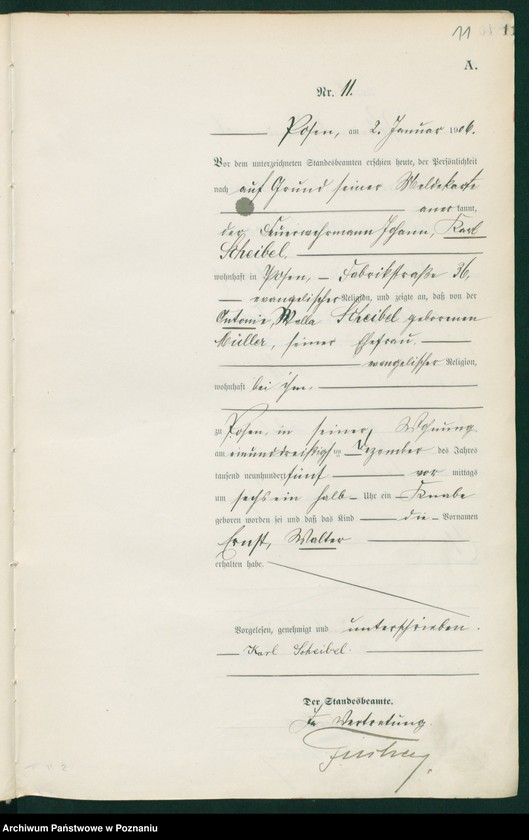 11
A.
Nr. 11.
Posen, am 2. Januar 1906.
Vor dem unterzeichneten Standesbeamten erschien heute, der Persönlichkeit
nach auf Grund seiner Meldekarte
anerkannt,
der Feuerwehrmann Johann, Karl
Scheibel,
wohnhaft in Posen, Fabrikstraße 36,
evangelischer Religion, und zeigte an, daß von der
Antonie, Wella Scheibel geborenen
Müller, seiner Ehefrau
evangelischer Religion,
wohnhaft bei ihm,
zu Posen, in seiner Wohnung
am einunddreißigsten Dezember des Jahres
tausend neunhundert fünf vormittags
um sechs ein halb Uhr ein Knabe
geboren worden sei und daß das Kind die Vornamen
Ernst, Walter
erhalten habe.
Vorgelesen, genehmigt und unterschrieben.
Karl Scheibel.
Der Standesbeamte.
In Vertretung.
Archiwum Państwowe w Poznaniu